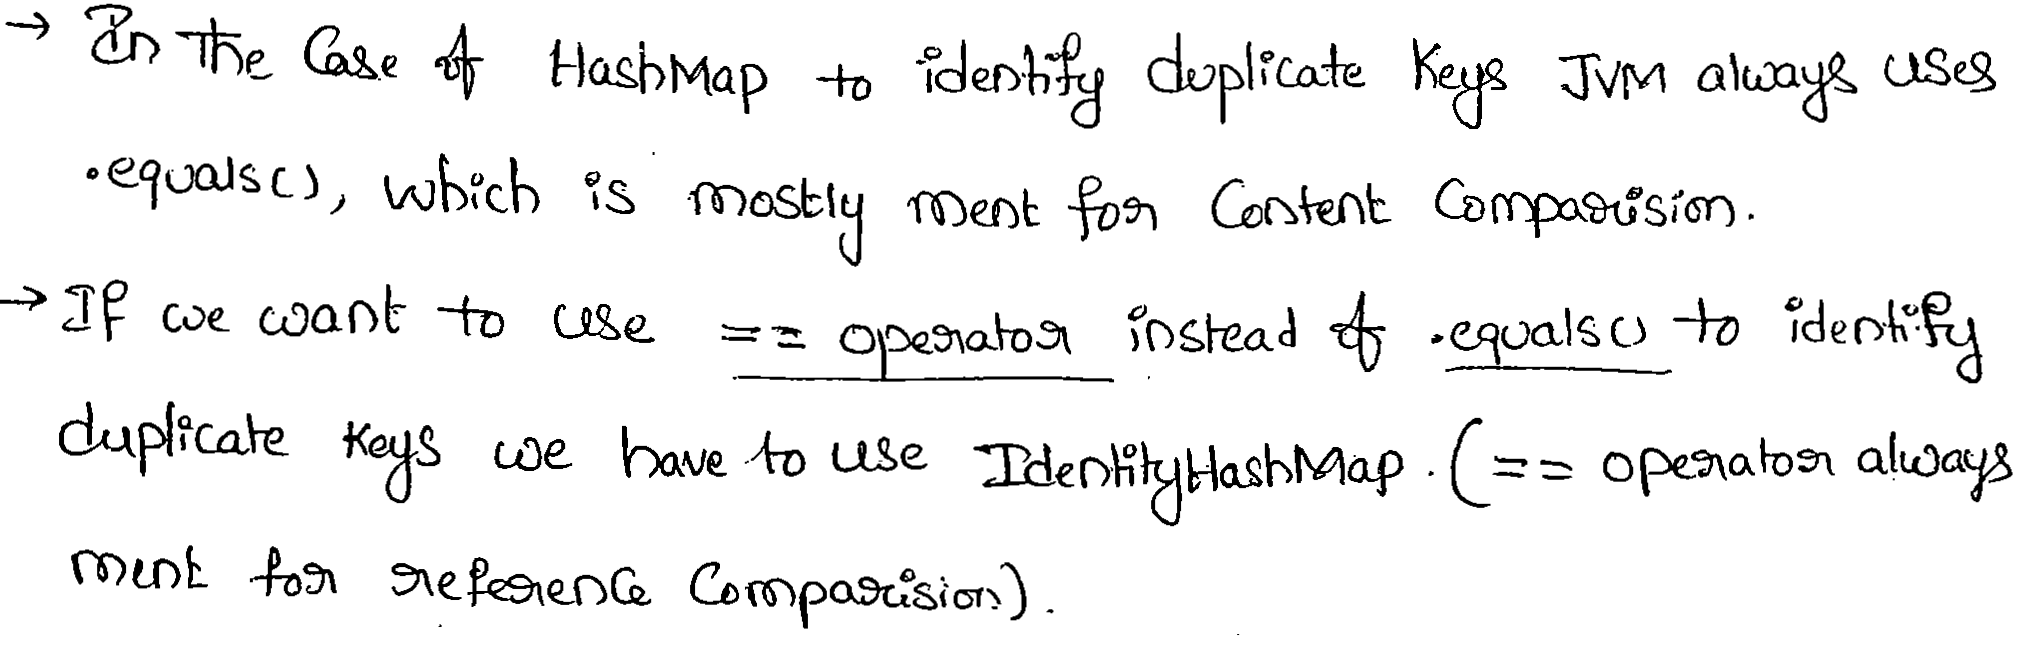 → In the Case of HashMap to identify duplicate Keys JVM always uses
.equals(), which is mostly ment for Content Comparision.
→ If we want to use == operator instead of .equals() to identify
duplicate keys we have to use IdentityHashMap. (== operator always
ment for reference Comparision).